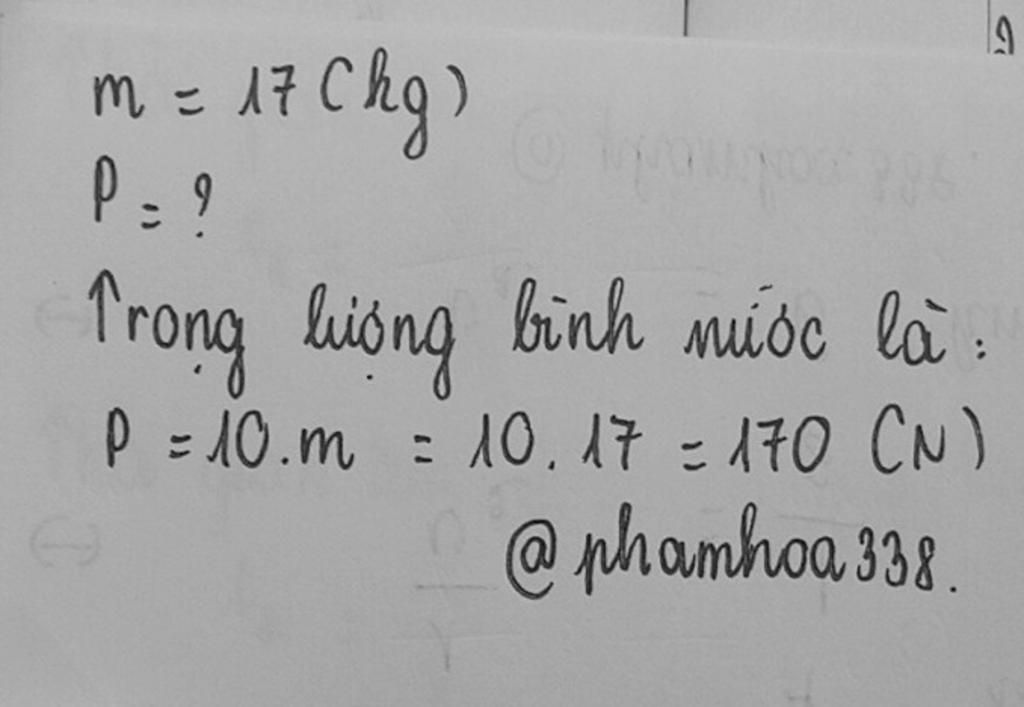 m = 17 (kg)
P = ?
Trọng lượng bình nước là:
P = 10.m = 10.17 = 170 (N)
@phamhoa338.